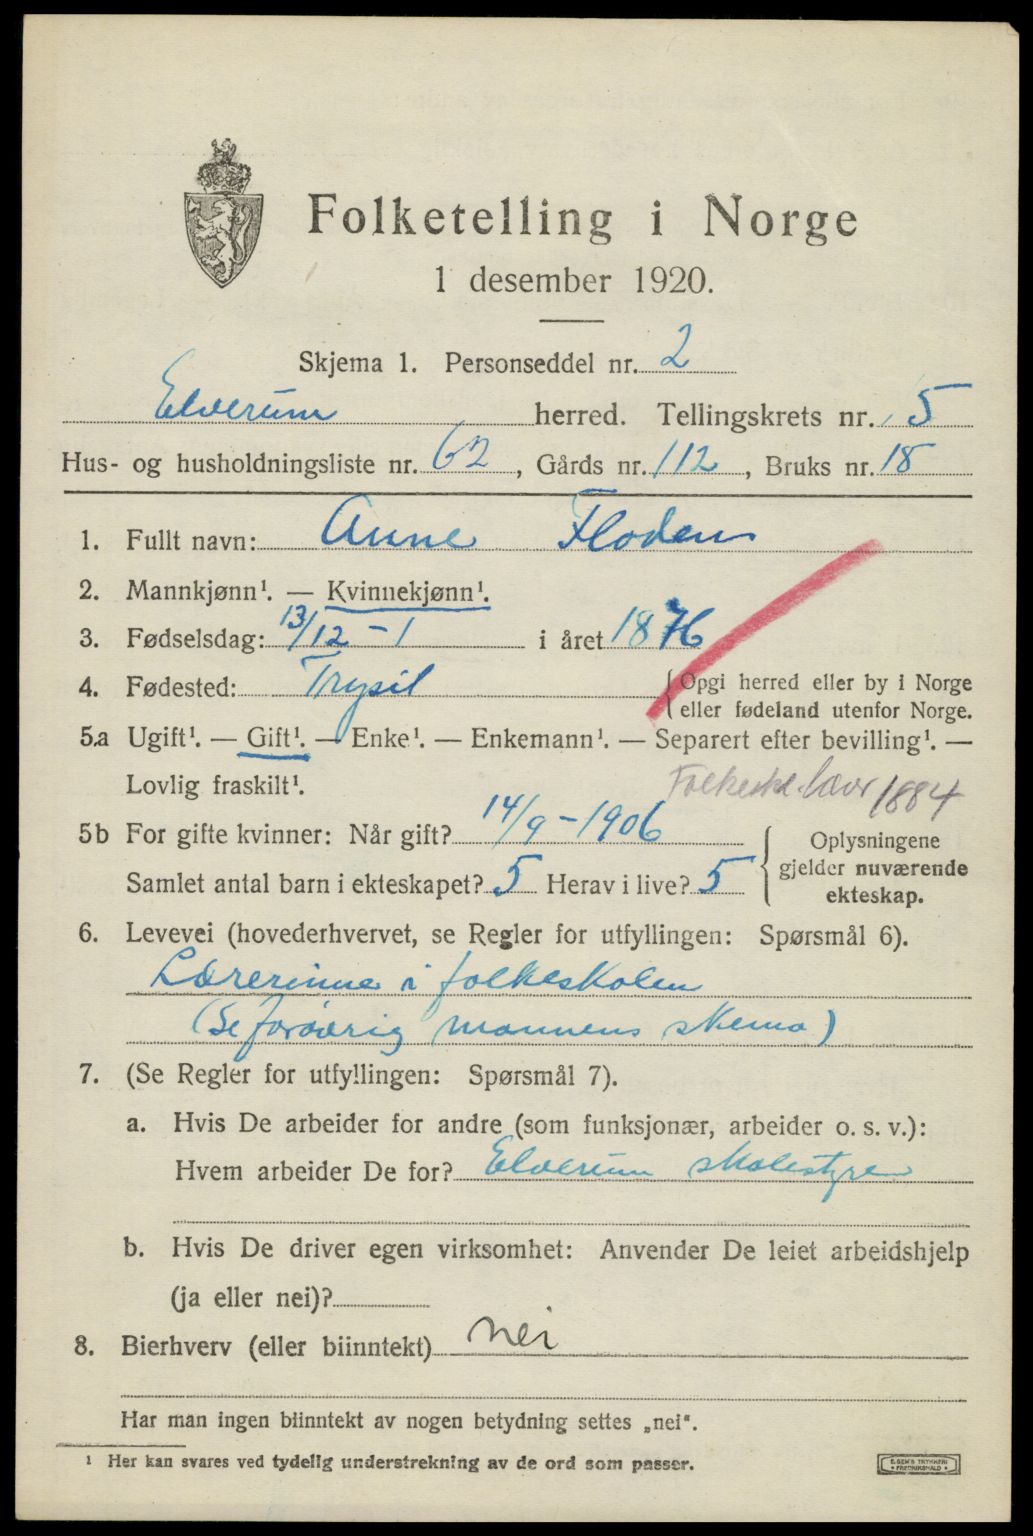 Folketelling i Norge
1 desember 1920.
Skjema 1. Personseddel nr. 2
Elverum herred. Tellingskrets nr. 5
Hus- og husholdningsliste nr. 62, Gårds nr. 112, Bruks nr. 18
1. Fullt navn: Anne Floden
2. Mannkjønn¹. — Kvinnekjønn¹.
3. Fødselsdag: 13/12 - 1 i året 1876
4. Fødested: Trysil {Opgi herred eller by i Norge
eller fødeland utenfor Norge.
5.a Ugift¹. — Gift¹. — Enke¹. — Enkemann¹. — Separert efter bevilling¹. —
Lovlig fraskilt¹. 1884
5b For gifte kvinner: Når gift? 14/9 - 1906 { Oplysningene
gjelder nuværende
Samlet antal barn i ekteskapet? 5 Herav i live? 5
ekteskap.
6. Levevei (hovederhvervet, se Regler for utfyllingen: Spørsmål 6).
Lærerinne i folkeskolen
(Se forøvrig mannens skema)
7. (Se Regler for utfyllingen: Spørsmål 7).
a. Hvis De arbeider for andre (som funksjonær, arbeider o. s. v.):
Hvem arbeider De for? Elverum skolestyre
b. Hvis De driver egen virksomhet: Anvender De leiet arbeidshjelp
(ja eller nei)?
8. Bierhverv (eller biinntekt) nei
Har man ingen biinntekt av nogen betydning settes „nei“.
¹ Her kan svares ved tydelig understrekning av de ord som passer.
E. SEM'S TRYKKERI
• FREDRIKSHALD •